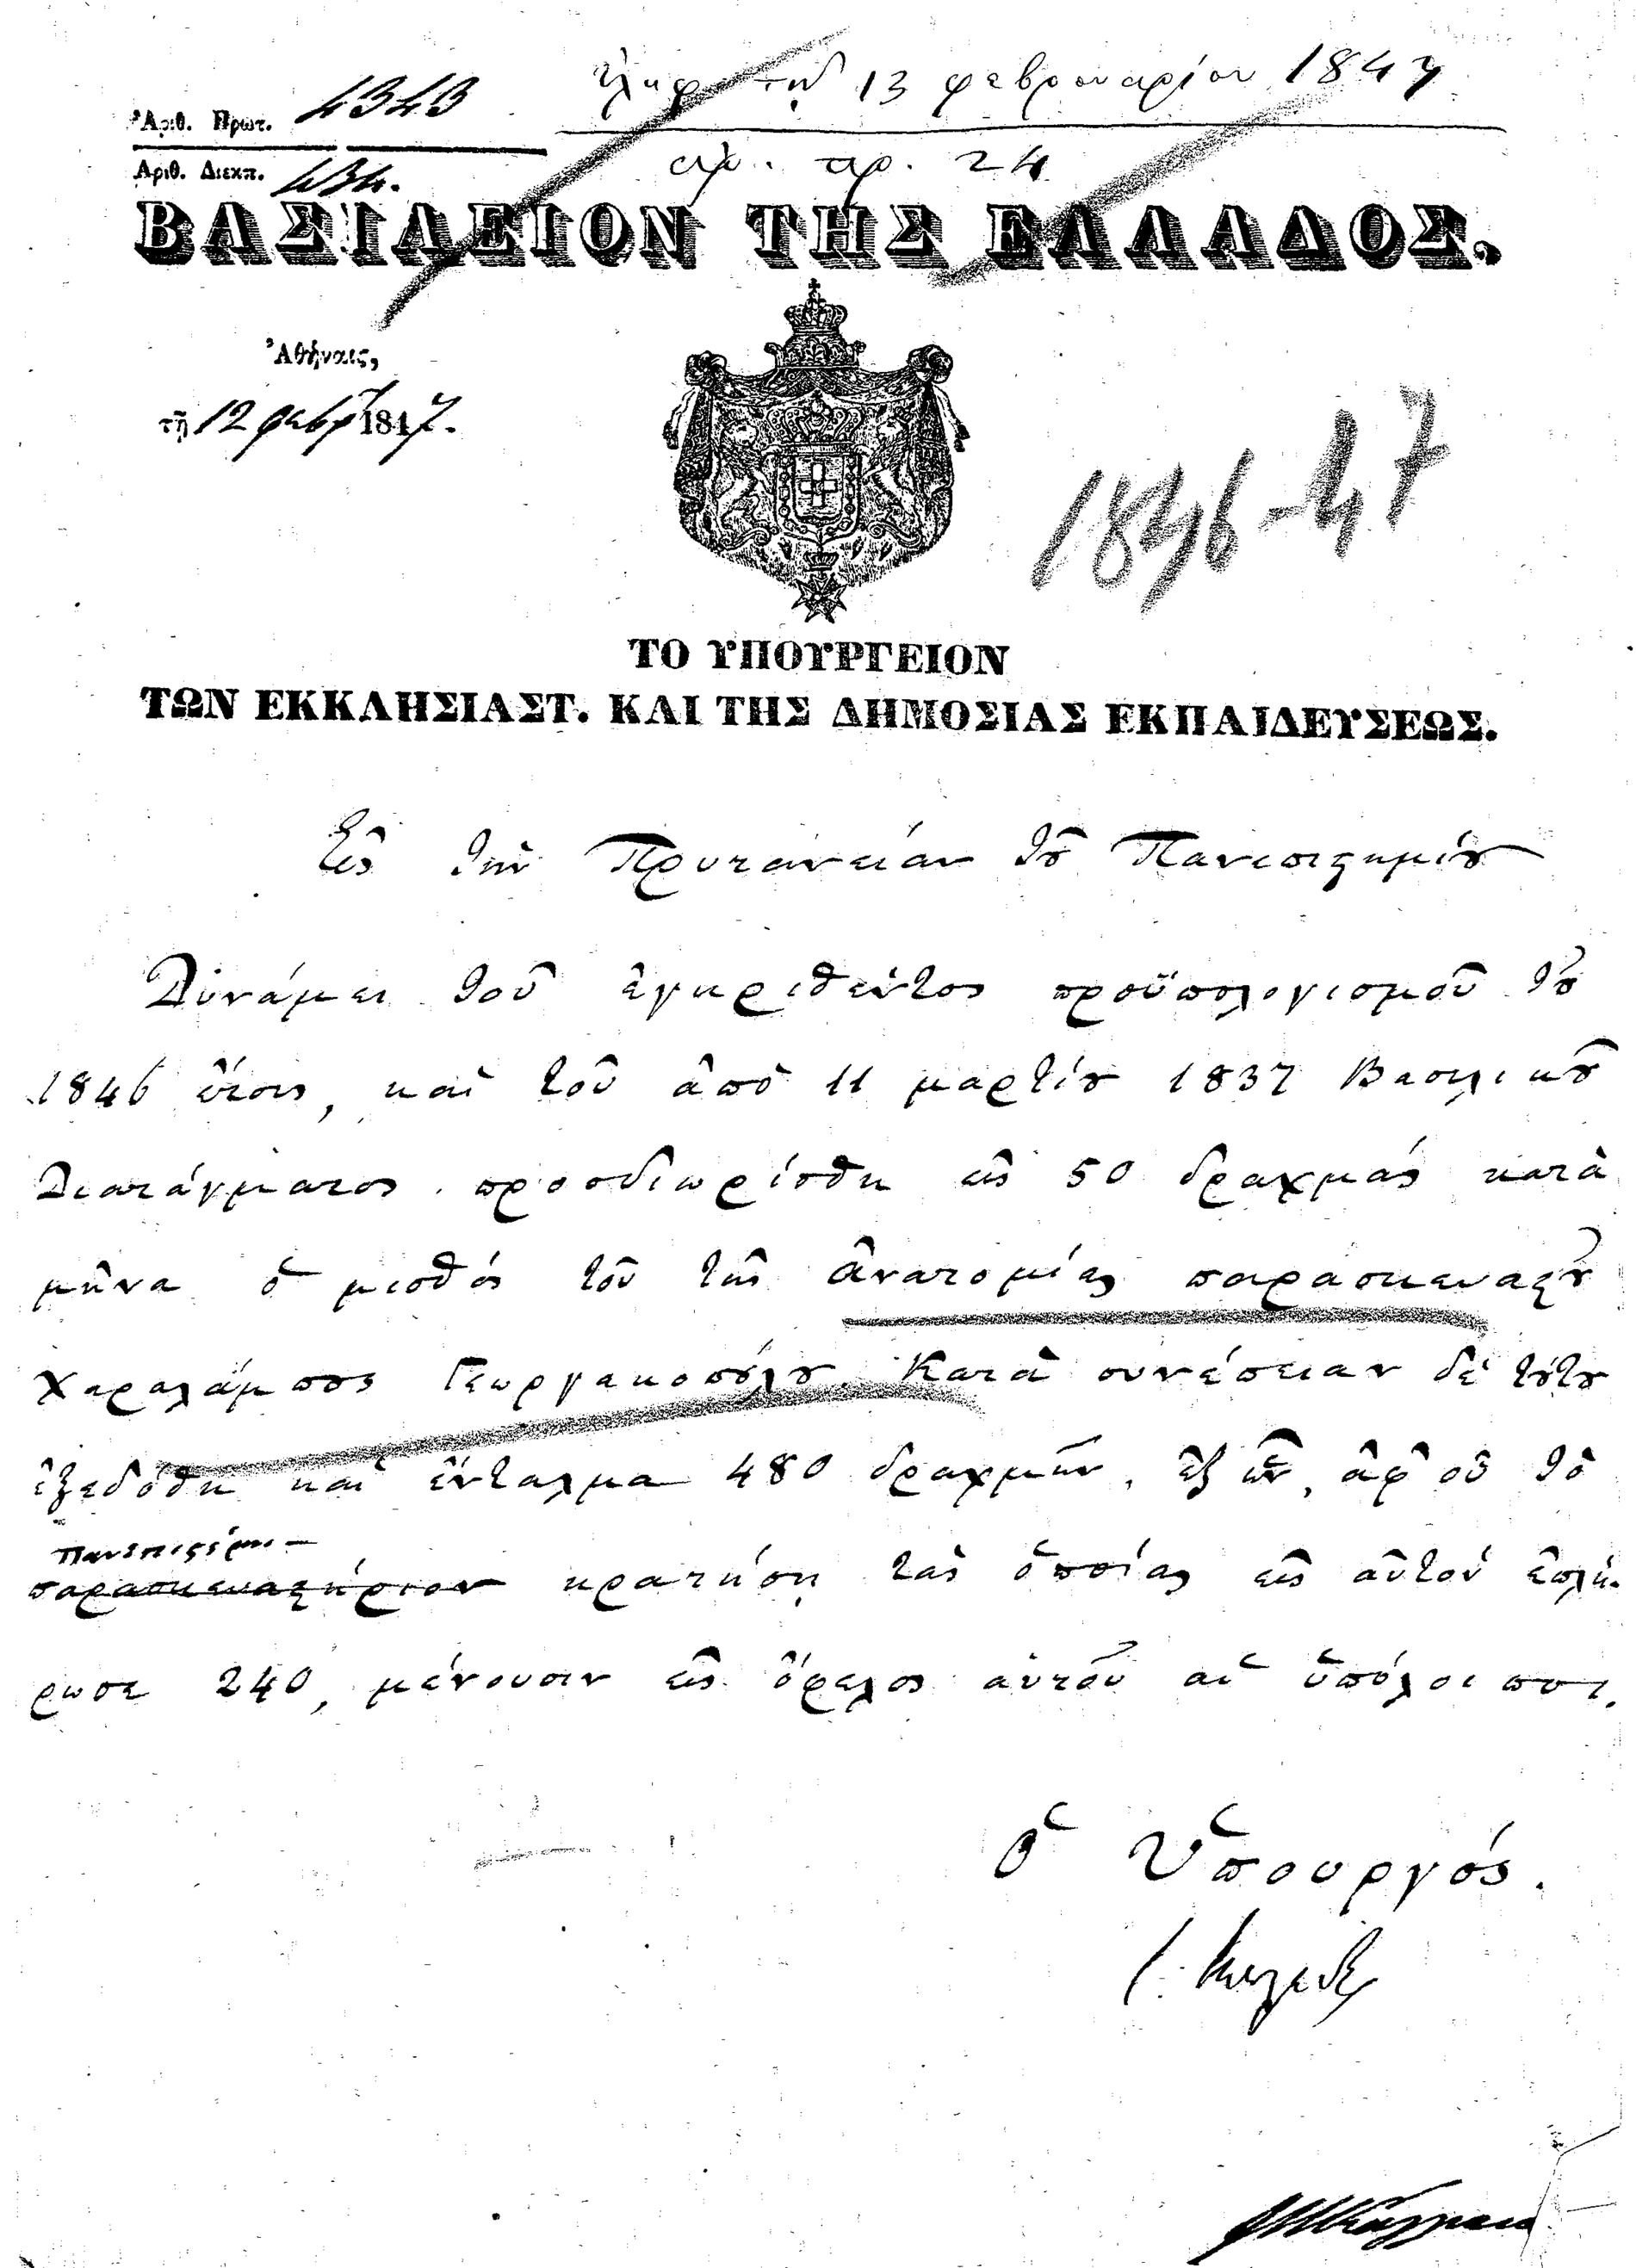 Ἀριθ. Πρωτ. 4343
ἐλήφθη τὴν 13 φεβρουαρίου 1847
Αριθ. Διεκπ. 434.
αρ. πρ. 24
ΒΑΣΙΛΕΙΟΝ ΤΗΣ ΕΛΛΑΔΟΣ,
Ἀθήναις,
τῇ 12 φεβρ 1847.
1846-47
ΤΟ ΥΠΟΥΡΓΕΙΟΝ
ΤΩΝ ΕΚΚΛΗΣΙΑΣΤ. ΚΑΙ ΤΗΣ ΔΗΜΟΣΙΑΣ ΕΚΠΑΙΔΕΥΣΕΩΣ.
Εἰς τὴν Πρυτανείαν τοῦ Πανεπιστημίου
Δυνάμει τοῦ ἐγκριθέντος προϋπολογισμοῦ τοῦ
1846 ἔτους, καὶ τοῦ ἀπὸ 11 μαρτίου 1837 Βασιλικοῦ
Διατάγματος προσδιωρίσθη εἰς 50 δραχμάς κατὰ
μῆνα ὁ μισθός τοῦ τῆς ἀνατομίας παρασκευαστοῦ
Χαραλάμπους Γεωργακοπούλου. Κατὰ συνέπειαν δὲ τούτου
ἐξεδόθη καὶ ἔνταλμα 480 δραχμῶν, ἐξ ὧν, ἀφ' οὗ τὸ
παρασκευαστήριον κρατήσῃ τὰς ὁποίας εἰς αὐτὸν ἐπλή-
ρωσε 240, μένουσιν εἰς ὄφελος αὐτοῦ αἱ ὑπόλοιποι.
Ὁ Ὑπουργός.